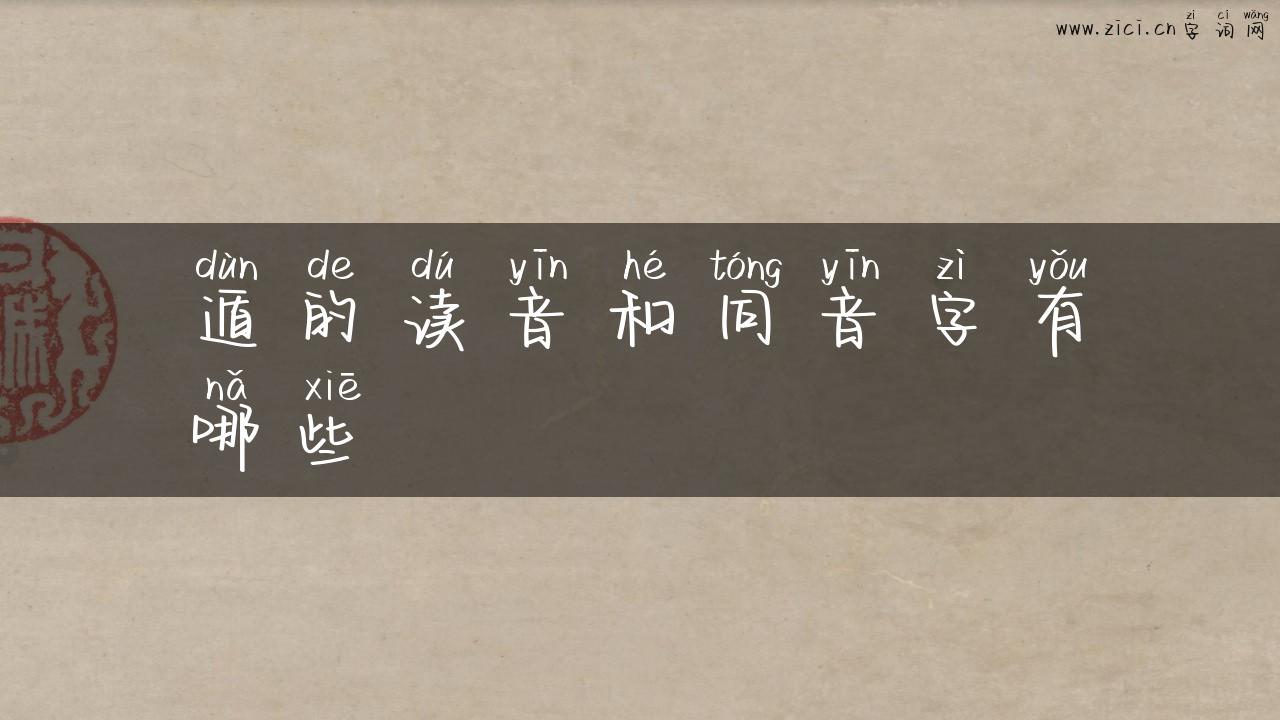 zì cí wǎng
www.zici.cn 字 词 网
dùn de dú yīn hé tóng yīn zì yǒu
遁 的 读 音 和 同 音 字 有
nǎ xiē
哪 些